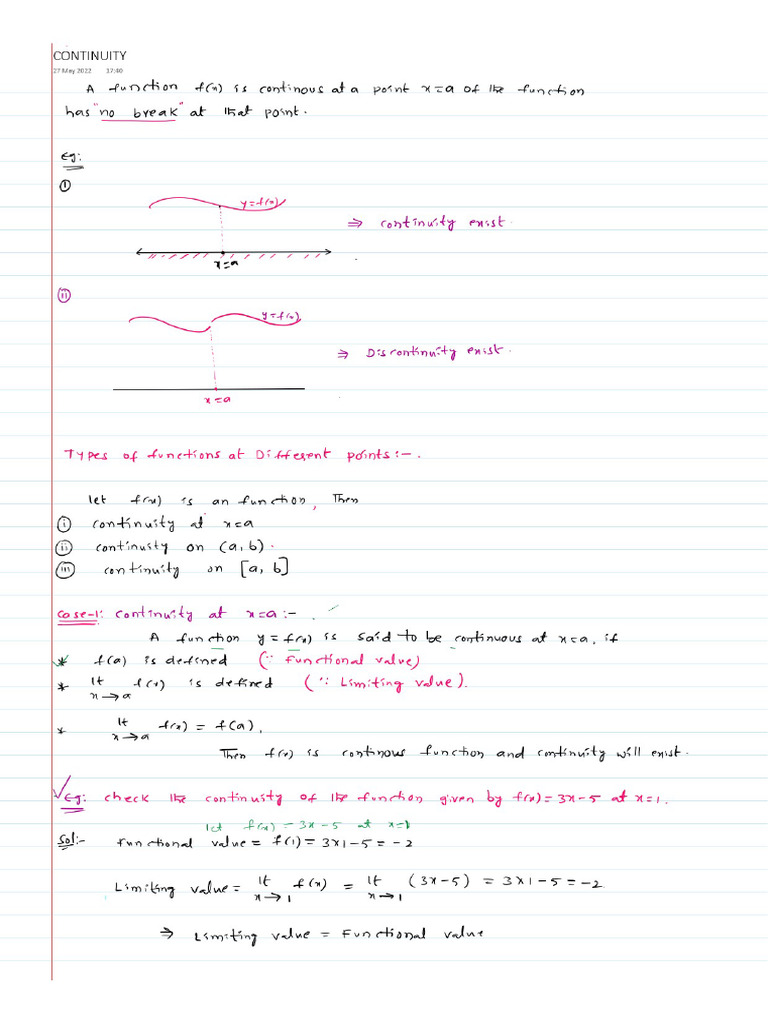 CONTINUITY
27 May 2022 17:40
A function f(x) is continous at a point x=a of the function
has "no break" at that point.
Eg:
(i)
y=f(x)
⇒ continuity exist.
x=a
(ii)
y=f(x)
⇒ Discontinuity exist.
x=a
Types of functions at Different points:-.
let f(x) is an function, Then
(i) continuity at x=a
(ii) continuity on (a, b).
(iii) continuity on [a, b]
case-1: continuity at x=a:-.
A function y=f(x) is said to be continuous at x=a, if
* f(a) is defined (∵ Functional value)
* lt x→a f(x) is defined (∵ Limiting value).
* lt x→a f(x) = f(a).
Then f(x) is continous function and continuity will exist.
Eg: check the continuity of the function given by f(x)=3x-5 at x=1.
let f(x)=3x-5 at x=1
Sol:- Functional value = f(1) = 3x1-5 = -2
Limiting value = lt x→1 f(x) = lt x→1 (3x-5) = 3x1-5 = -2
⇒ Limiting value = Functional value